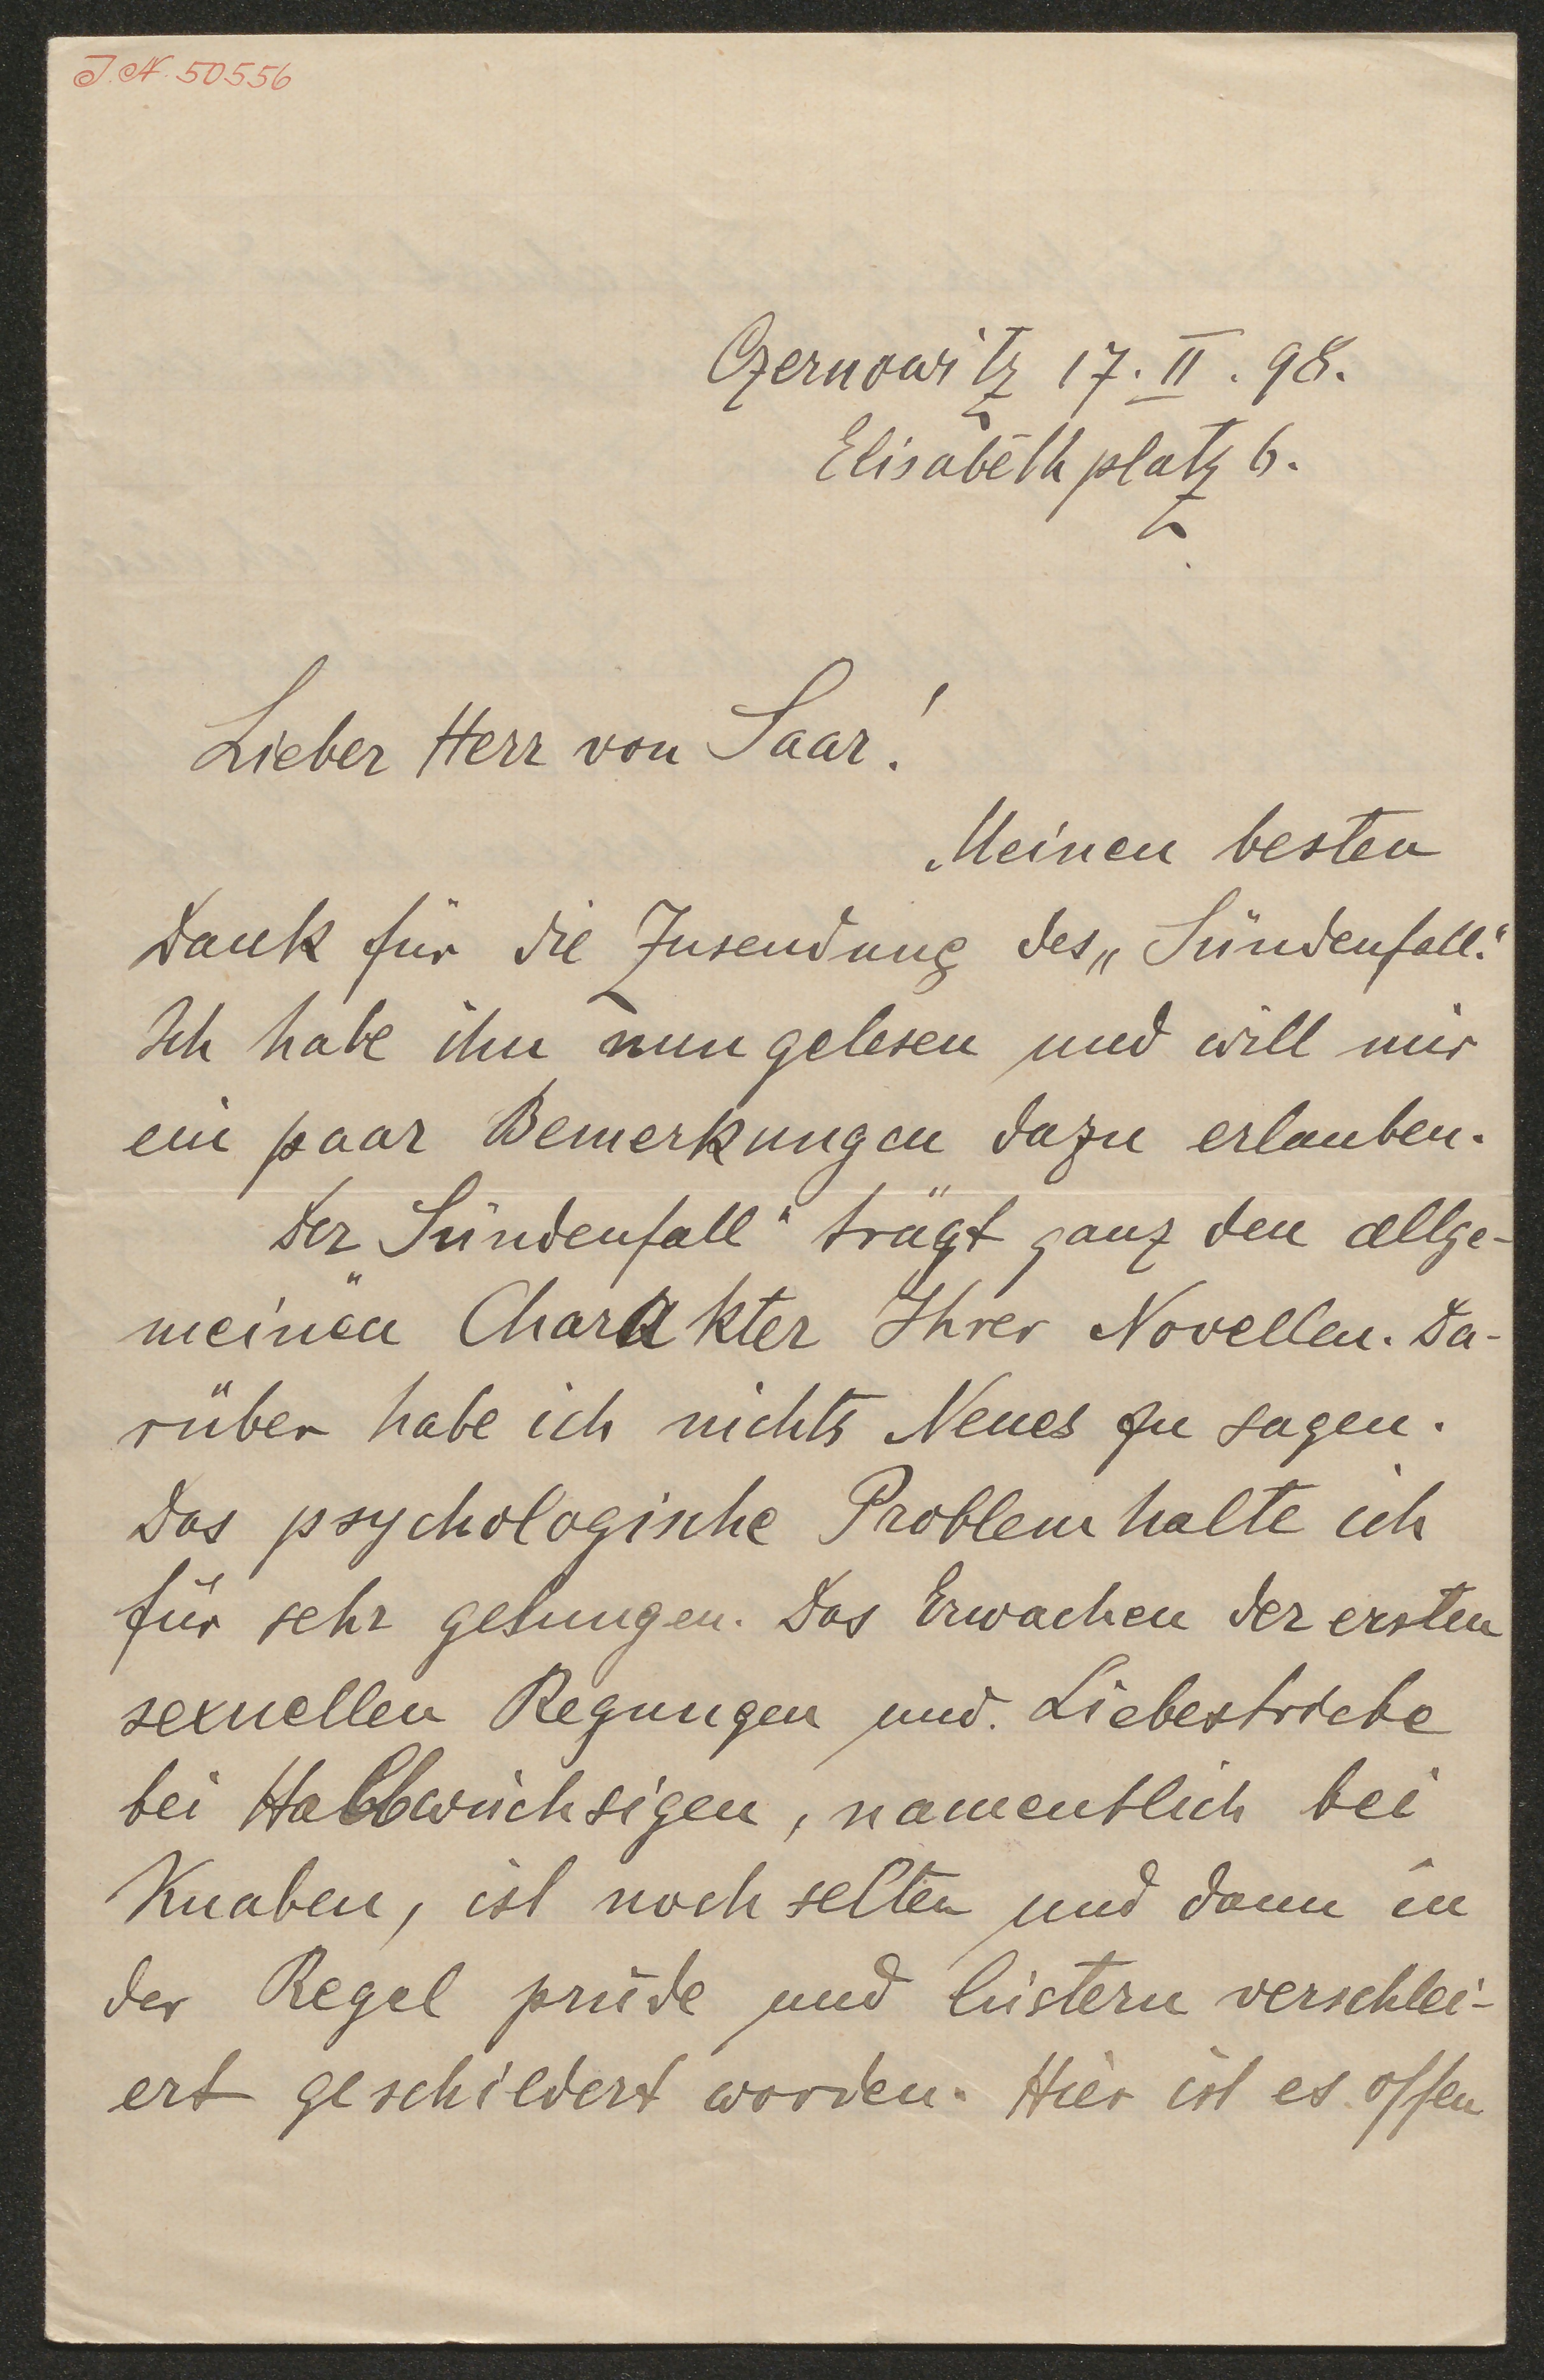 J.N. 50556
Czernowitz 17. II. 98.
Elisabethplatz 6.
Lieber Herr von Saar!
Meinen besten
Dank für die Zusendung des „Sündenfall.“
Ich habe ihn nun gelesen und will mir
ein paar Bemerkungen dazu erlauben.
Der „Sündenfall“ trägt ganz den allge-
meinen Charakter Ihrer Novellen. Da-
rüber habe ich nichts Neues zu sagen.
Das psychologische Problem halte ich
für sehr gelungen. Das Erwachen der ersten
sexuellen Regungen und Liebestriebe
bei Halbwüchsigen, namentlich bei
Knaben, ist noch selten und dann in
der Regel prüde und lüstern verschlei-
ert geschildert worden. Hier ist es offen